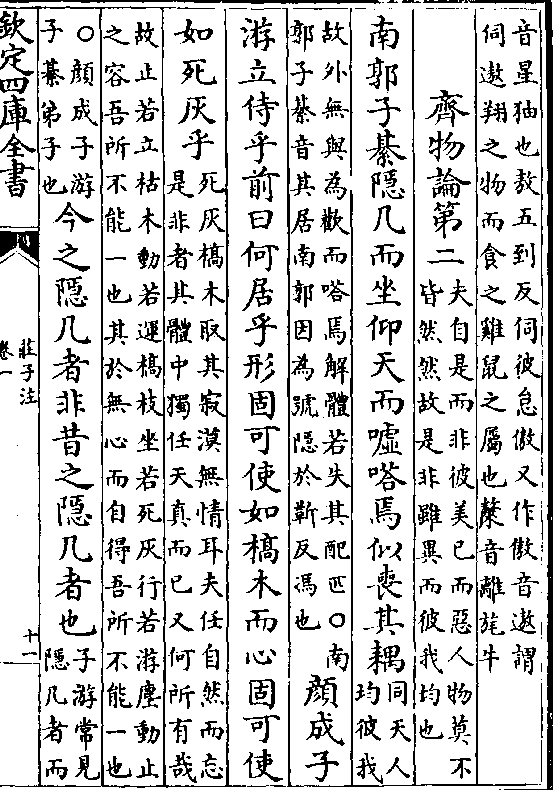 音星狌也敖五到反伺彼怠傲又作傲音遨謂
伺遨翔之物而食之雞鼠之屬也斄音離旄牛
齊物論第二
夫自是而非彼美已而惡人物莫不
皆然然故是非雖異而彼我均也
南郭子綦隱几而坐仰天而噓嗒焉似喪其耦
同天人
均彼我
故外無與為歡而嗒焉解體若失其配匹○南
郭子綦音其居南郭因為號隱於靳反馮也
顔成子
游立侍乎前曰何居乎形固可使如槁木而心固可使
如死灰乎
死灰槁木取其寂漠無情耳夫任自然而忘
是非者其體中獨任天真而已又何所有哉
故止若立枯木動若運槁枝坐若死灰行若游塵動止
之容吾所不能一也其於無心而自得吾所不能二也
○顔成子游
子綦弟子也
今之隱几者非昔之隱几者也
子游常見
隱几者而
欽定四庫全書
莊子注
卷一
十一